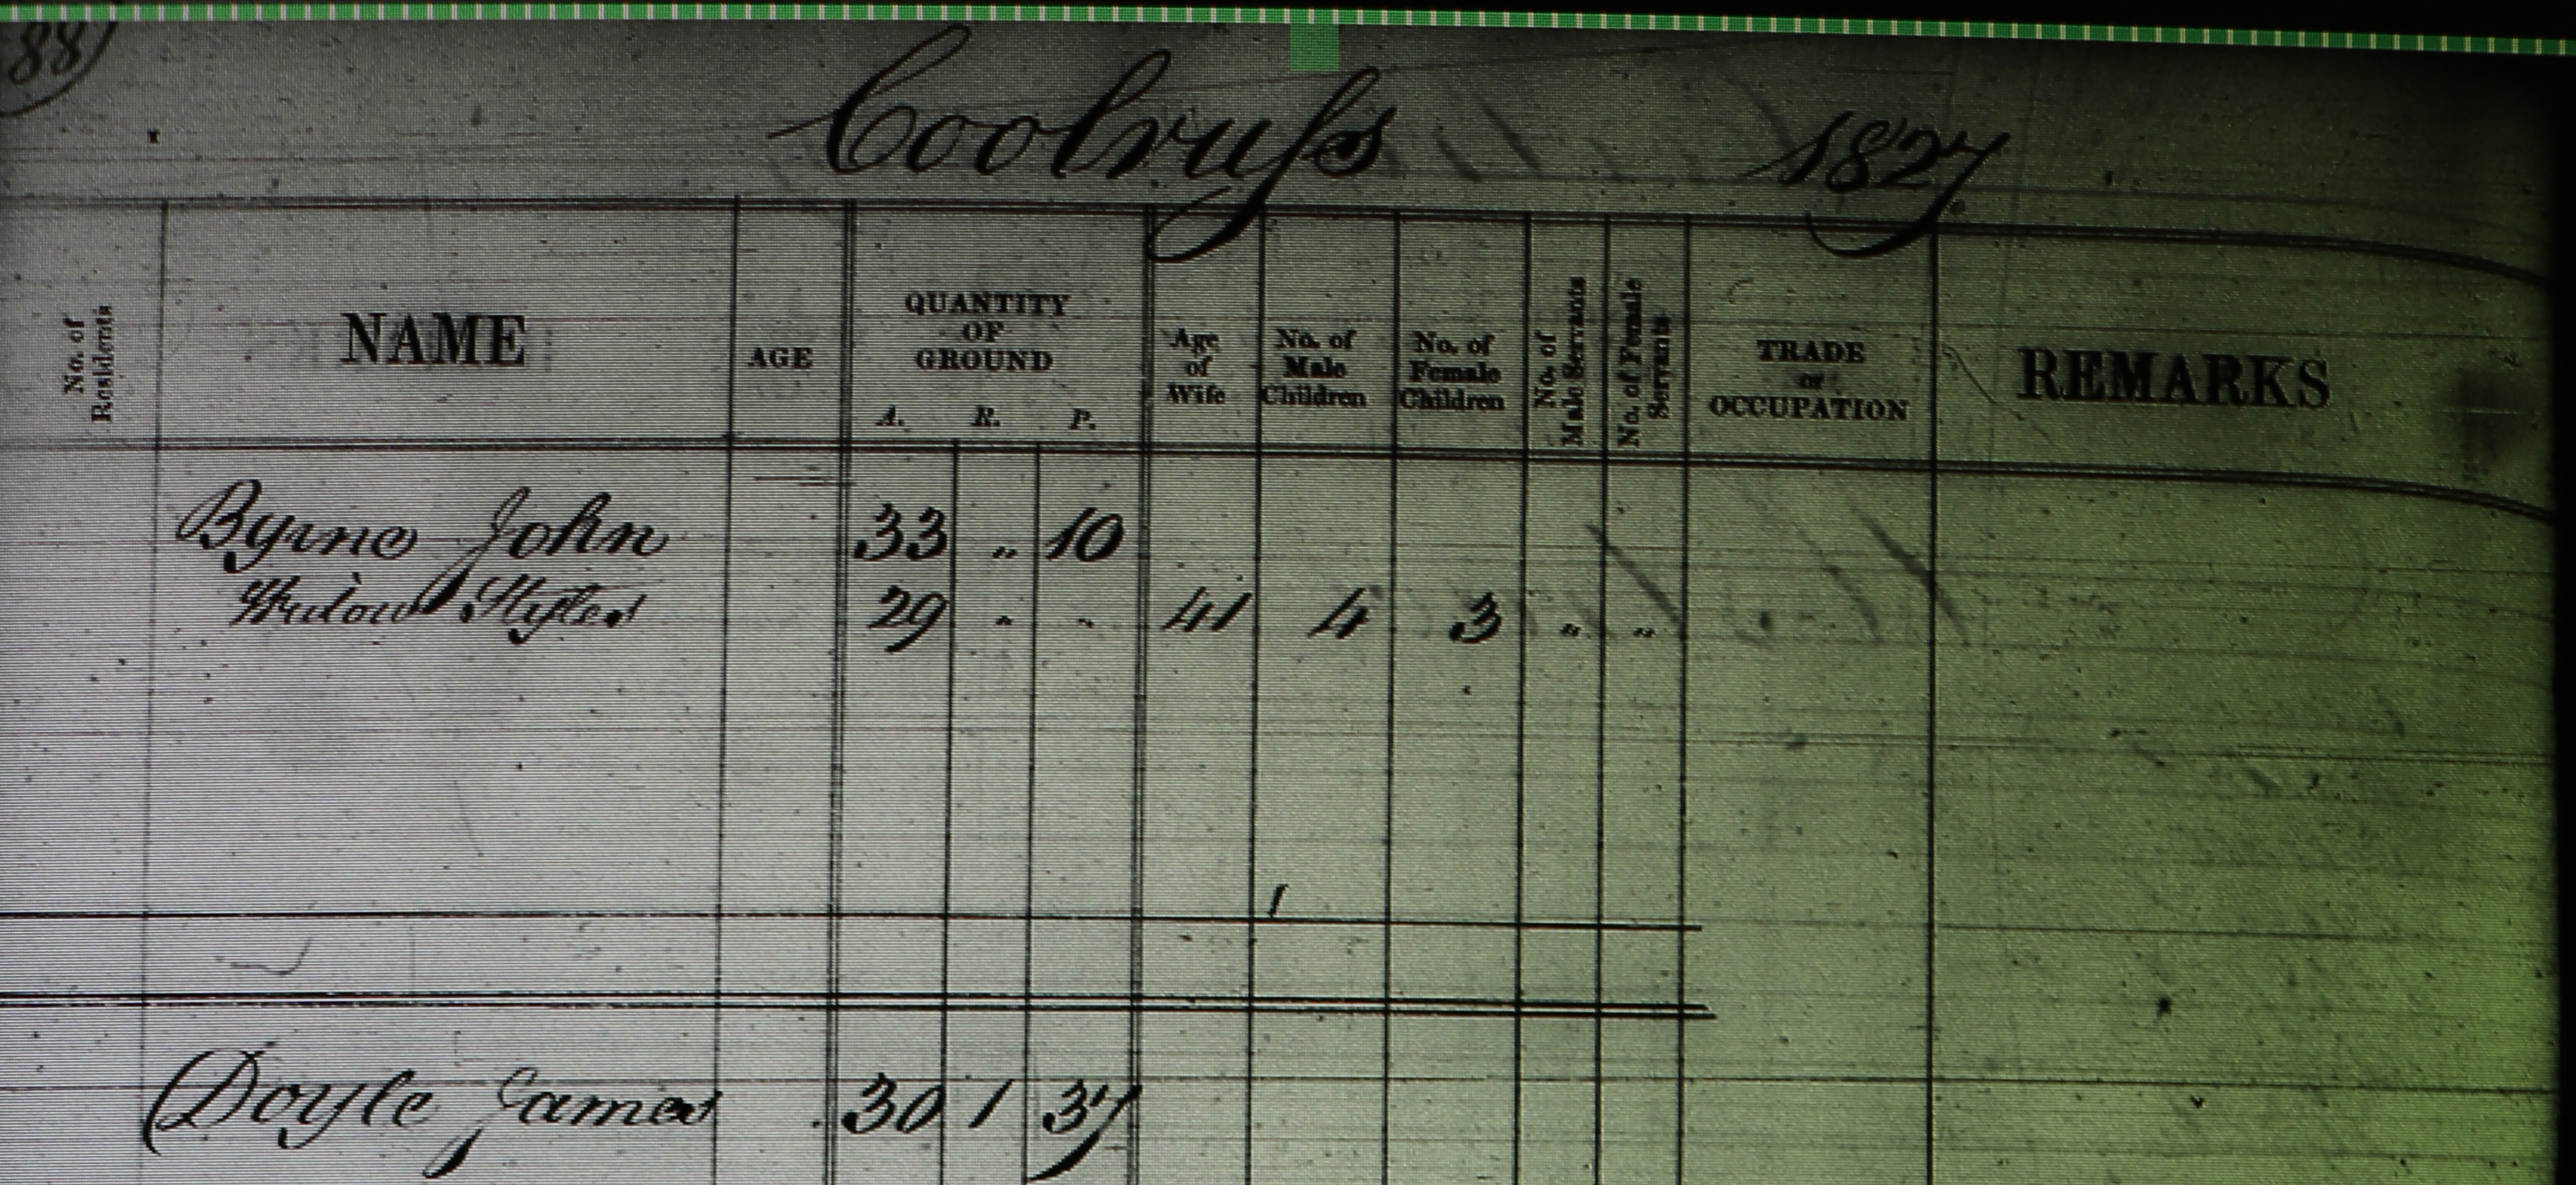 88
Coolruss 1827
No. of Residents NAME AGE QUANTITY OF GROUND A. R. P. Age of Wife No. of Male Children No. of Female Children No. of Male Servants No. of Female Servants TRADE or OCCUPATION REMARKS
Byrne John 33 „ 10
Widow 29 „ „ 41 4 3 „ „
Doyle James 30 1 37